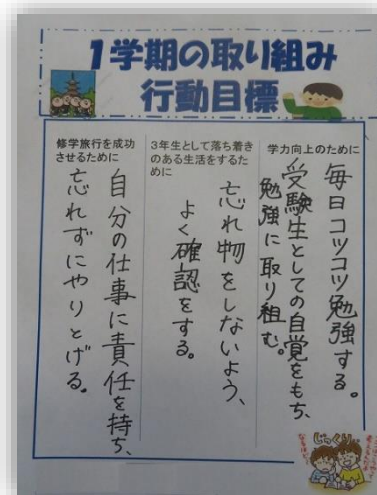 1学期の取り組み
行動目標
学力向上のために
毎日コツコツ勉強する。
受験生としての自覚をもち、
勉強に取り組む。
3年生として落ち着き
のある生活をするた
めに
忘れ物をしないよう、
よく確認をする。
修学旅行を成功
させるために
自分の仕事に責任を持ち、
忘れずにやりとげる。
じっくり